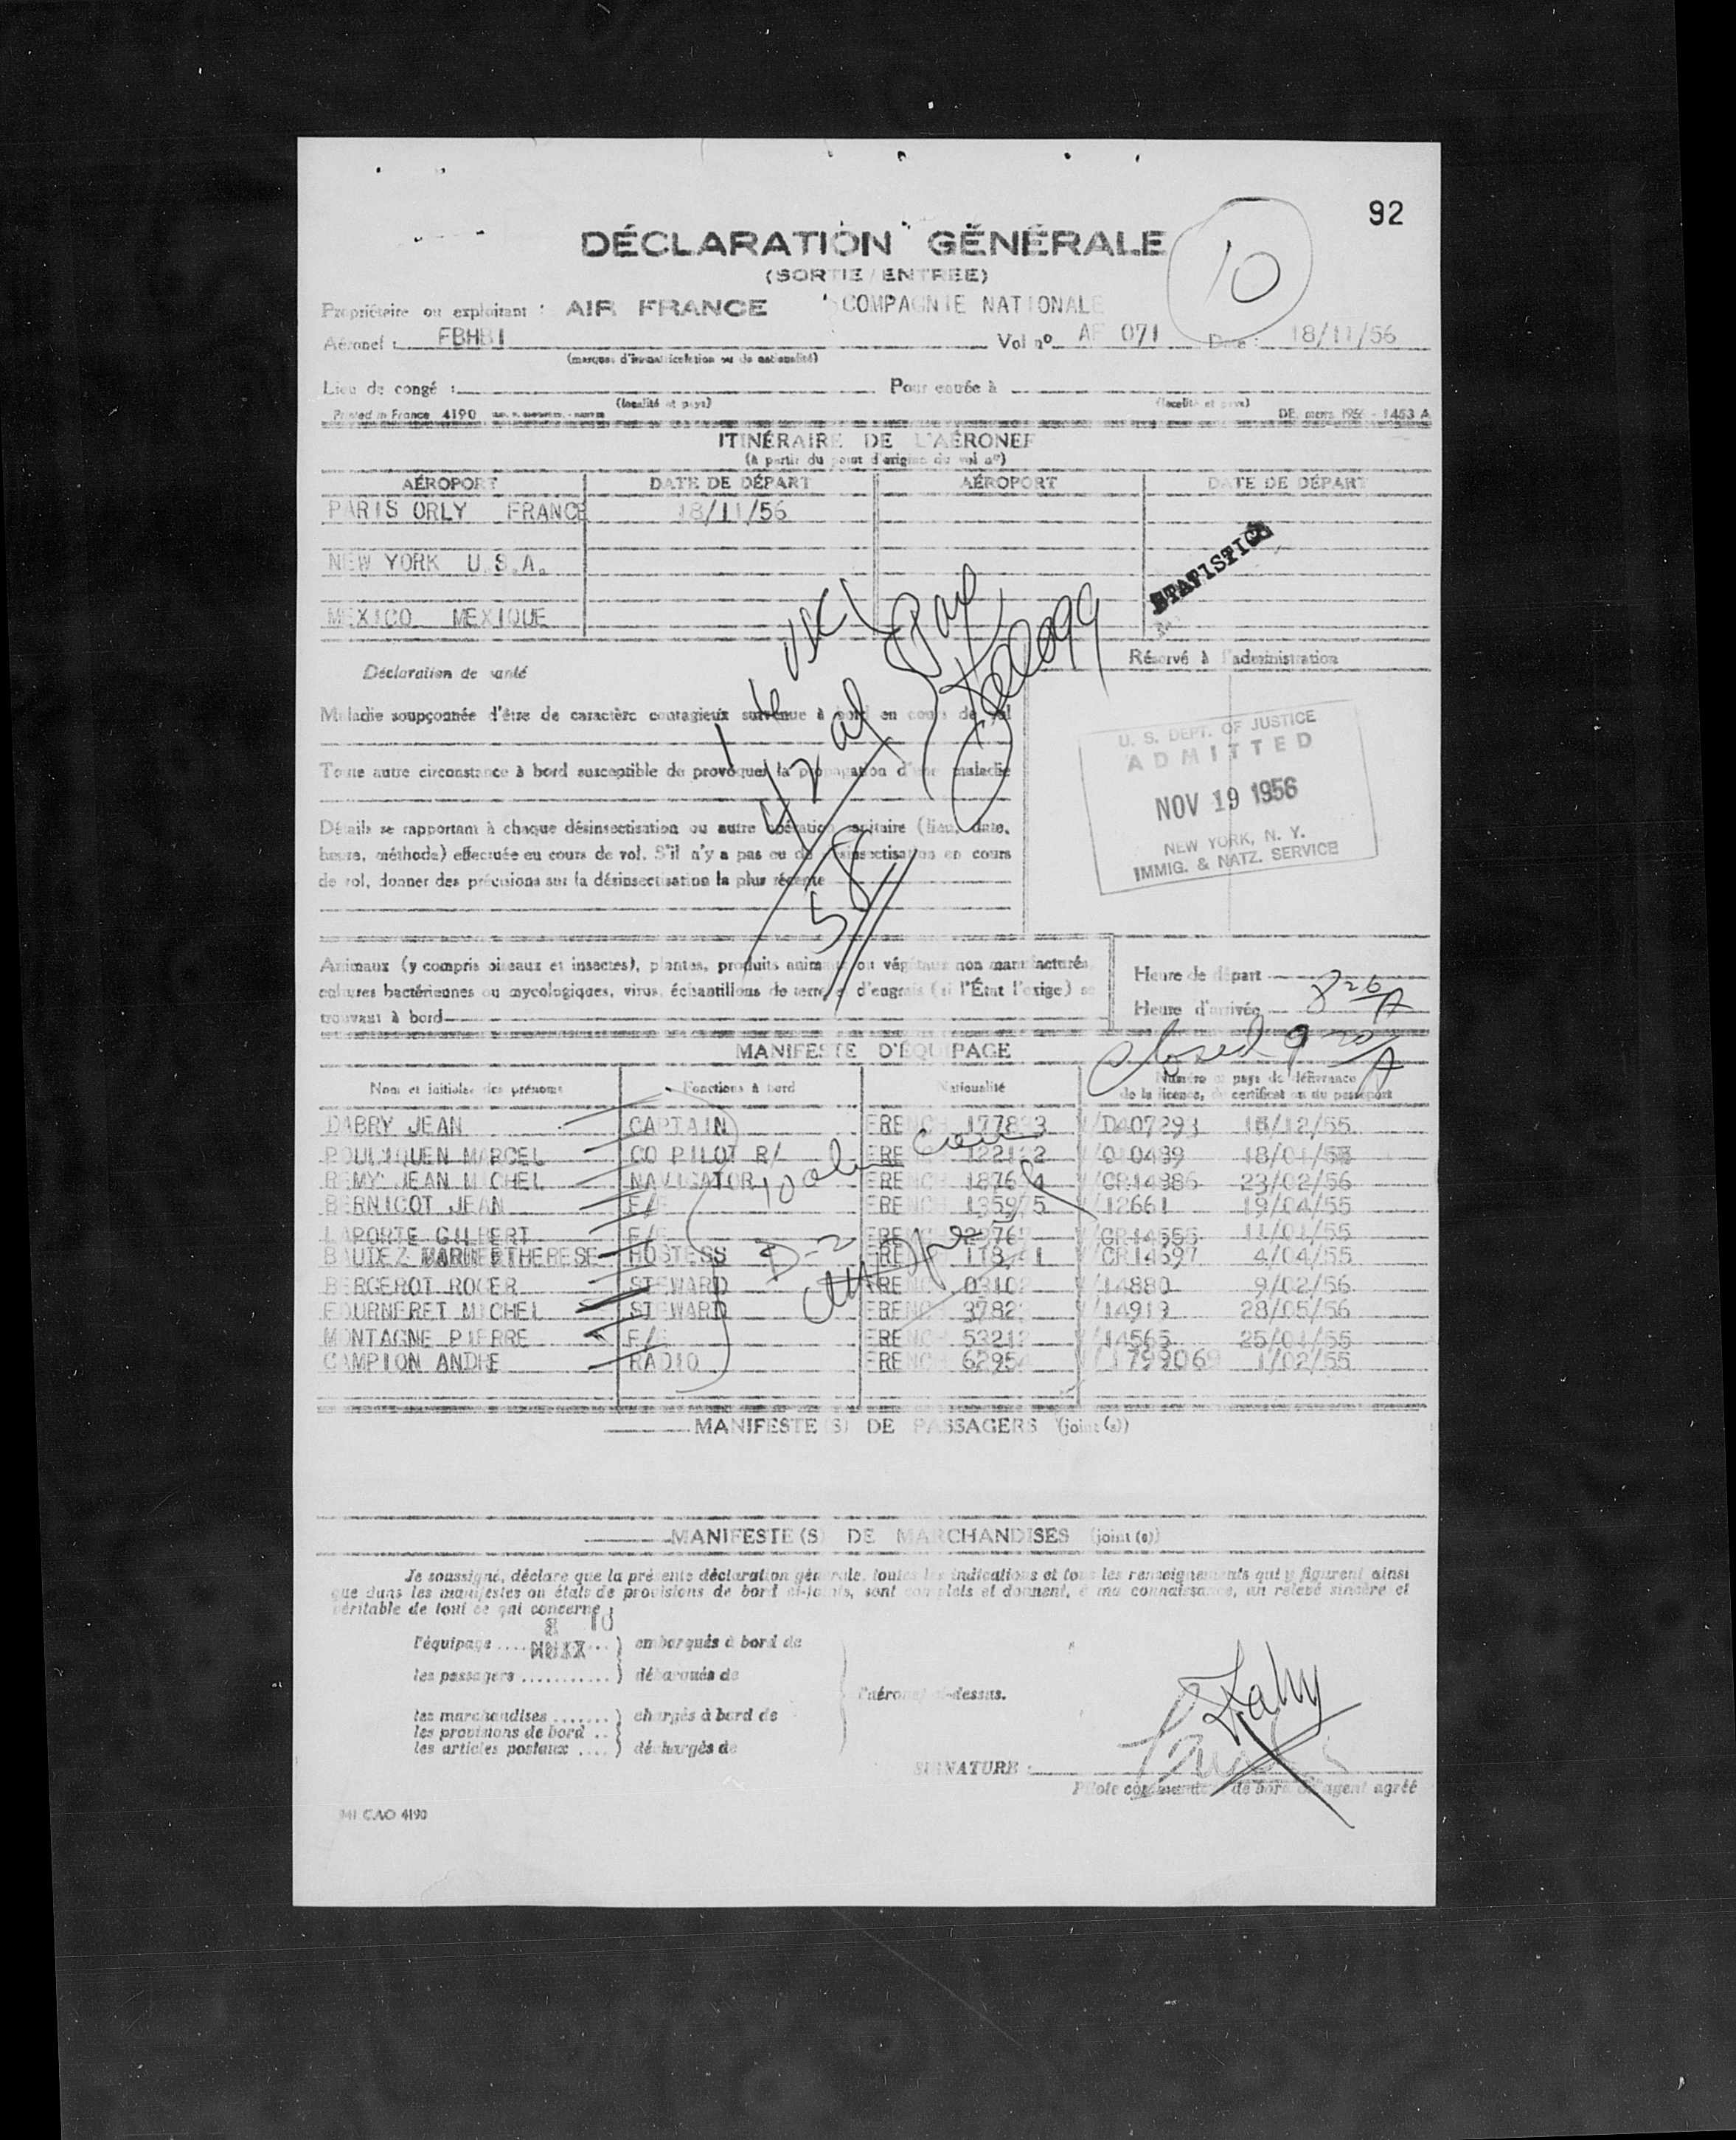 92
DÉCLARATION GÉNÉRALE
10
(SORTIE/ENTREE)
Propriétaire ou exploitant : AIR FRANCE COMPAGNIE NATIONALE
Aéronef : FBHBI Vol nº AF 071 Date : 18/11/56
(marques d'immatriculation ou de nationalité)
Lieu de congé : Pour entrée à
(localité et pays) (localité et pays)
Printed in France 4190 DE mars 1956 - 1453 A
ITINÉRAIRE DE L'AÉRONEF
(à partir du point d'origine du vol nº)
AÉROPORT DATE DE DÉPART AÉROPORT DATE DE DÉPART
PARIS ORLY FRANCE 18/11/56
NEW YORK U.S.A.
MEXICO MEXIQUE
STATISTICS
Déclaration de santé
Réservé à l'administration
Maladie soupçonnée d'être de caractère contagieux survenue à bord en cours de vol
Toute autre circonstance à bord susceptible de provoquer la propagation d'une maladie
Détails se rapportant à chaque désinsectisation ou autre opération sanitaire (lieu, date,
heure, méthode) effectuée en cours de vol. S'il n'y a pas eu de désinsectisation en cours
de vol, donner des précisions sur la désinsectisation la plus récente
42 al
58
U. S. DEPT. OF JUSTICE
ADMITTED
NOV 19 1956
NEW YORK, N. Y.
IMMIG. & NATZ. SERVICE
Animaux (y compris oiseaux et insectes), plantes, produits animaux ou végétaux non manufacturés,
cultures bactériennes ou mycologiques, virus, échantillons de terre et d'engrais (si l'État l'exige) se
trouvant à bord
Heure de départ
Heure d'arrivée 8 26 A
Closed 9 20 A
MANIFESTE D'ÉQUIPAGE
Nom et initiales des prénoms Fonctions à bord Nationalité Numéro et pays de délivrance
de la licence, du certificat ou du passeport
DABRY JEAN CAPTAIN FRENCH D407293
POULIQUEN MARCEL CO PILOT R/ FRENCH
REMY JEAN MICHEL NAVIGATOR FRENCH CR14986 23/02/56
BERNICOT JEAN F/E FRENCH 12661 19/04/55
LAPORTE GILBERT F/E FRENCH CR14555 11/01/55
BAUDEZ THERESE HOSTESS FRENCH CR14597 4/04/55
BERGEROT ROGER STEWARD FRENCH 14880 9/02/56
FOURNERET MICHEL STEWARD FRENCH 14919 28/05/56
MONTAGNE PIERRE F/E FRENCH 14565 25/01/55
CAMPION ANDRE RADIO FRENCH 1799069 1/02/55
10 alien crew
D-2
MANIFESTE(S) DE PASSAGERS (joint(s))
MANIFESTE(S) DE MARCHANDISES (joint(s))
Je soussigné, déclare que la présente déclaration générale, toutes les indications et tous les renseignements qui y figurent ainsi
que dans les manifestes ou états de provisions de bord ci-joints, sont complets et donnent, à ma connaissance, un relevé sincère et
véritable de tout ce qui concerne :
10
l'équipage .... embarqués à bord de
les passagers ........... débarqués de
l'aéronef ci-dessus.
les marchandises ....... chargés à bord de
les provisions de bord ..
les articles postaux .... déchargés de
SIGNATURE :
Pilote commandant de bord ou agent agréé
MI CAO 4190